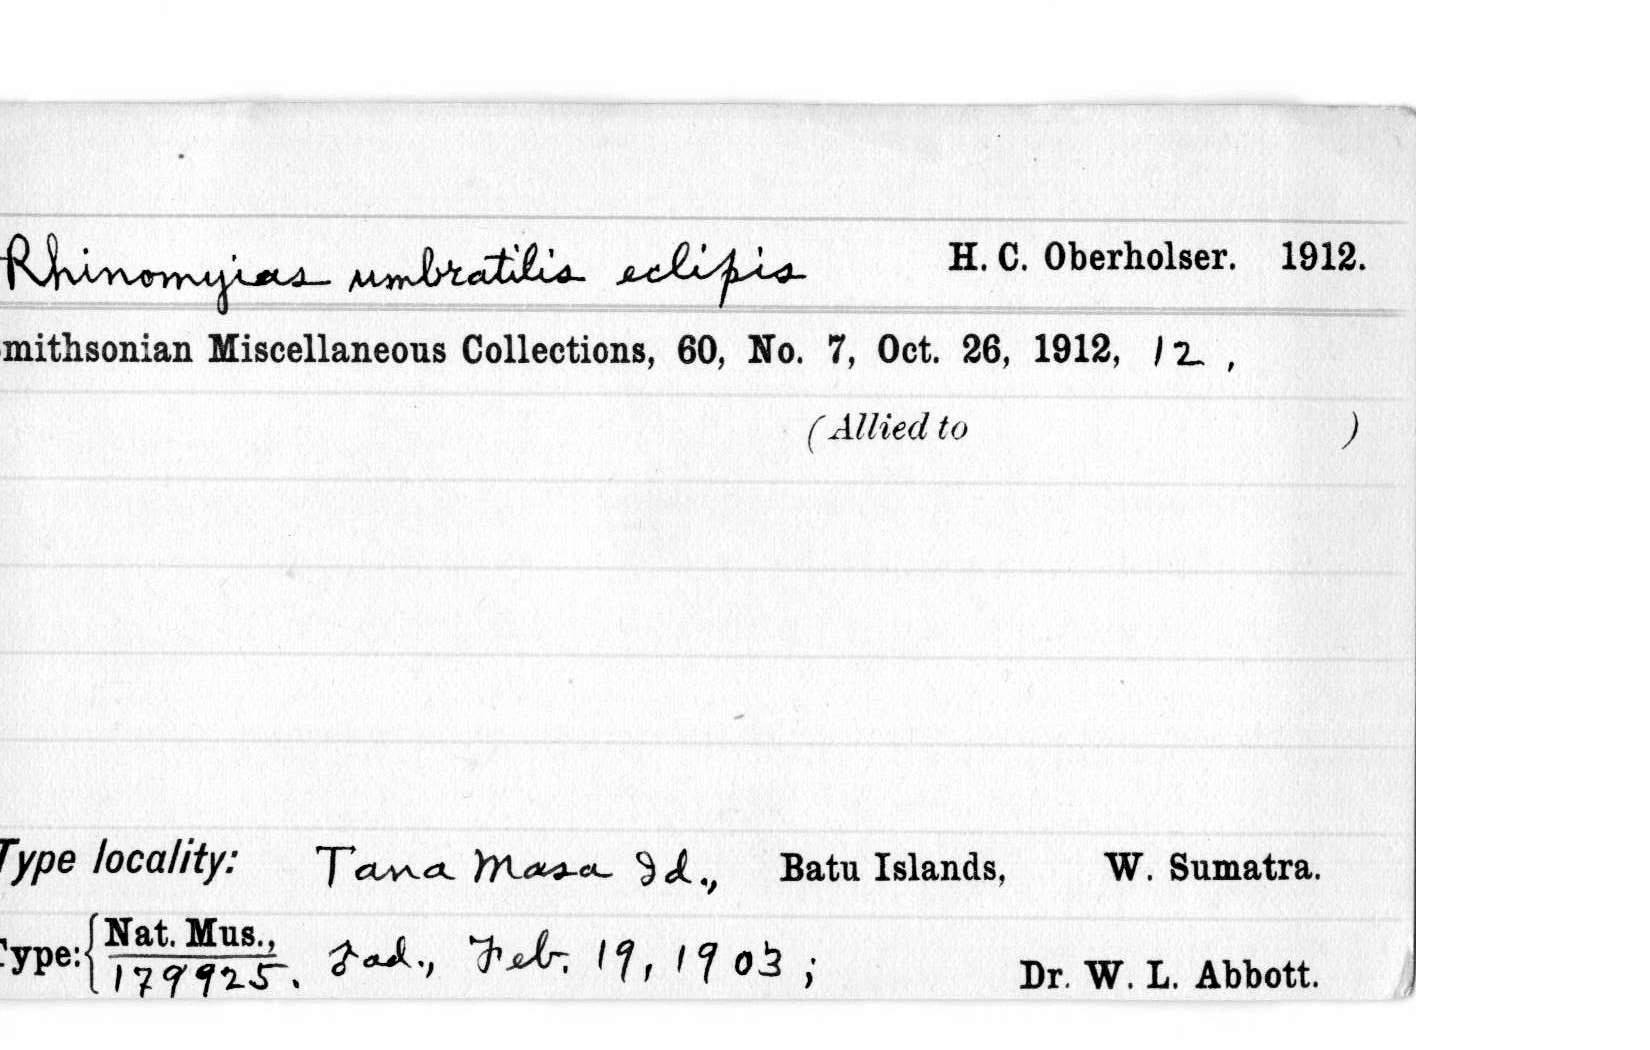 Rhinomyias umbratilis eclipis H. C. Oberholser. 1912.
mithsonian Miscellaneous Collections, 60, No. 7, Oct. 26, 1912, 12,
(Allied to )
Type locality: Tana Masa Id., Batu Islands, W. Sumatra.
Type: {Nat. Mus.,
179925. Fad., Feb. 19, 1903; Dr. W. L. Abbott.